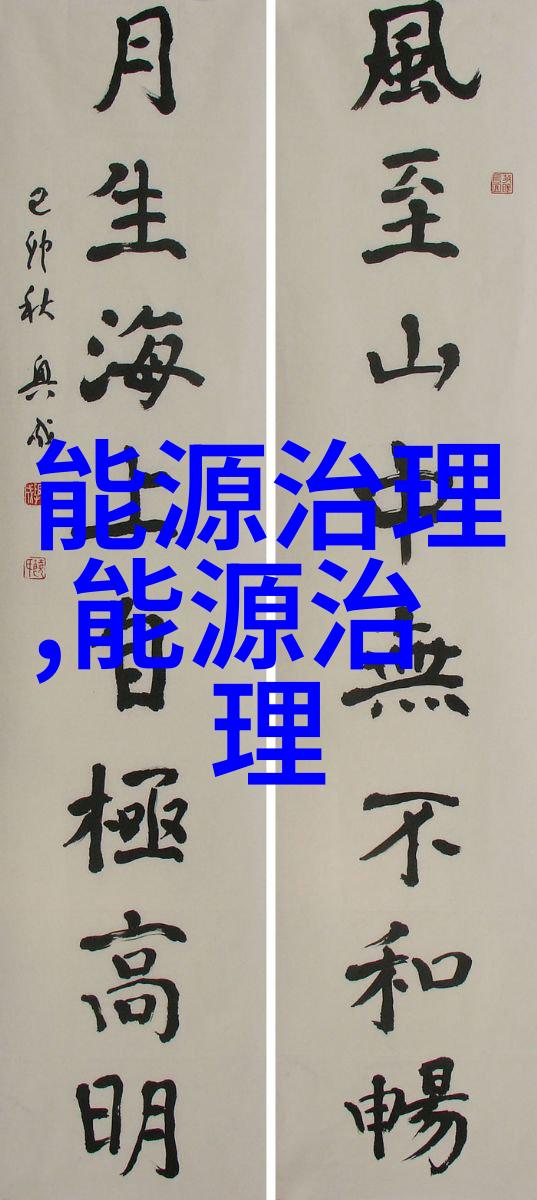 風至山中無不和暢
月生海上自極高明
己卯秋
能源治理
,能源治
理